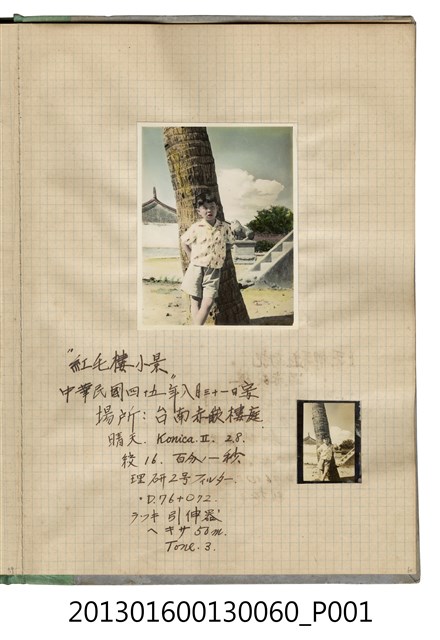 "紅毛樓小景"
中華民國四十五年八月三十一日寫
場所：台南赤嵌樓庭
晴天. Konica II. 2.8.
絞 16. 百分ノ一秒
理研2号フィルター.
・D.76+D72.
ラッキ 引伸器
ヘキサ 50m.
Tone. 3.
201301600130060_P001